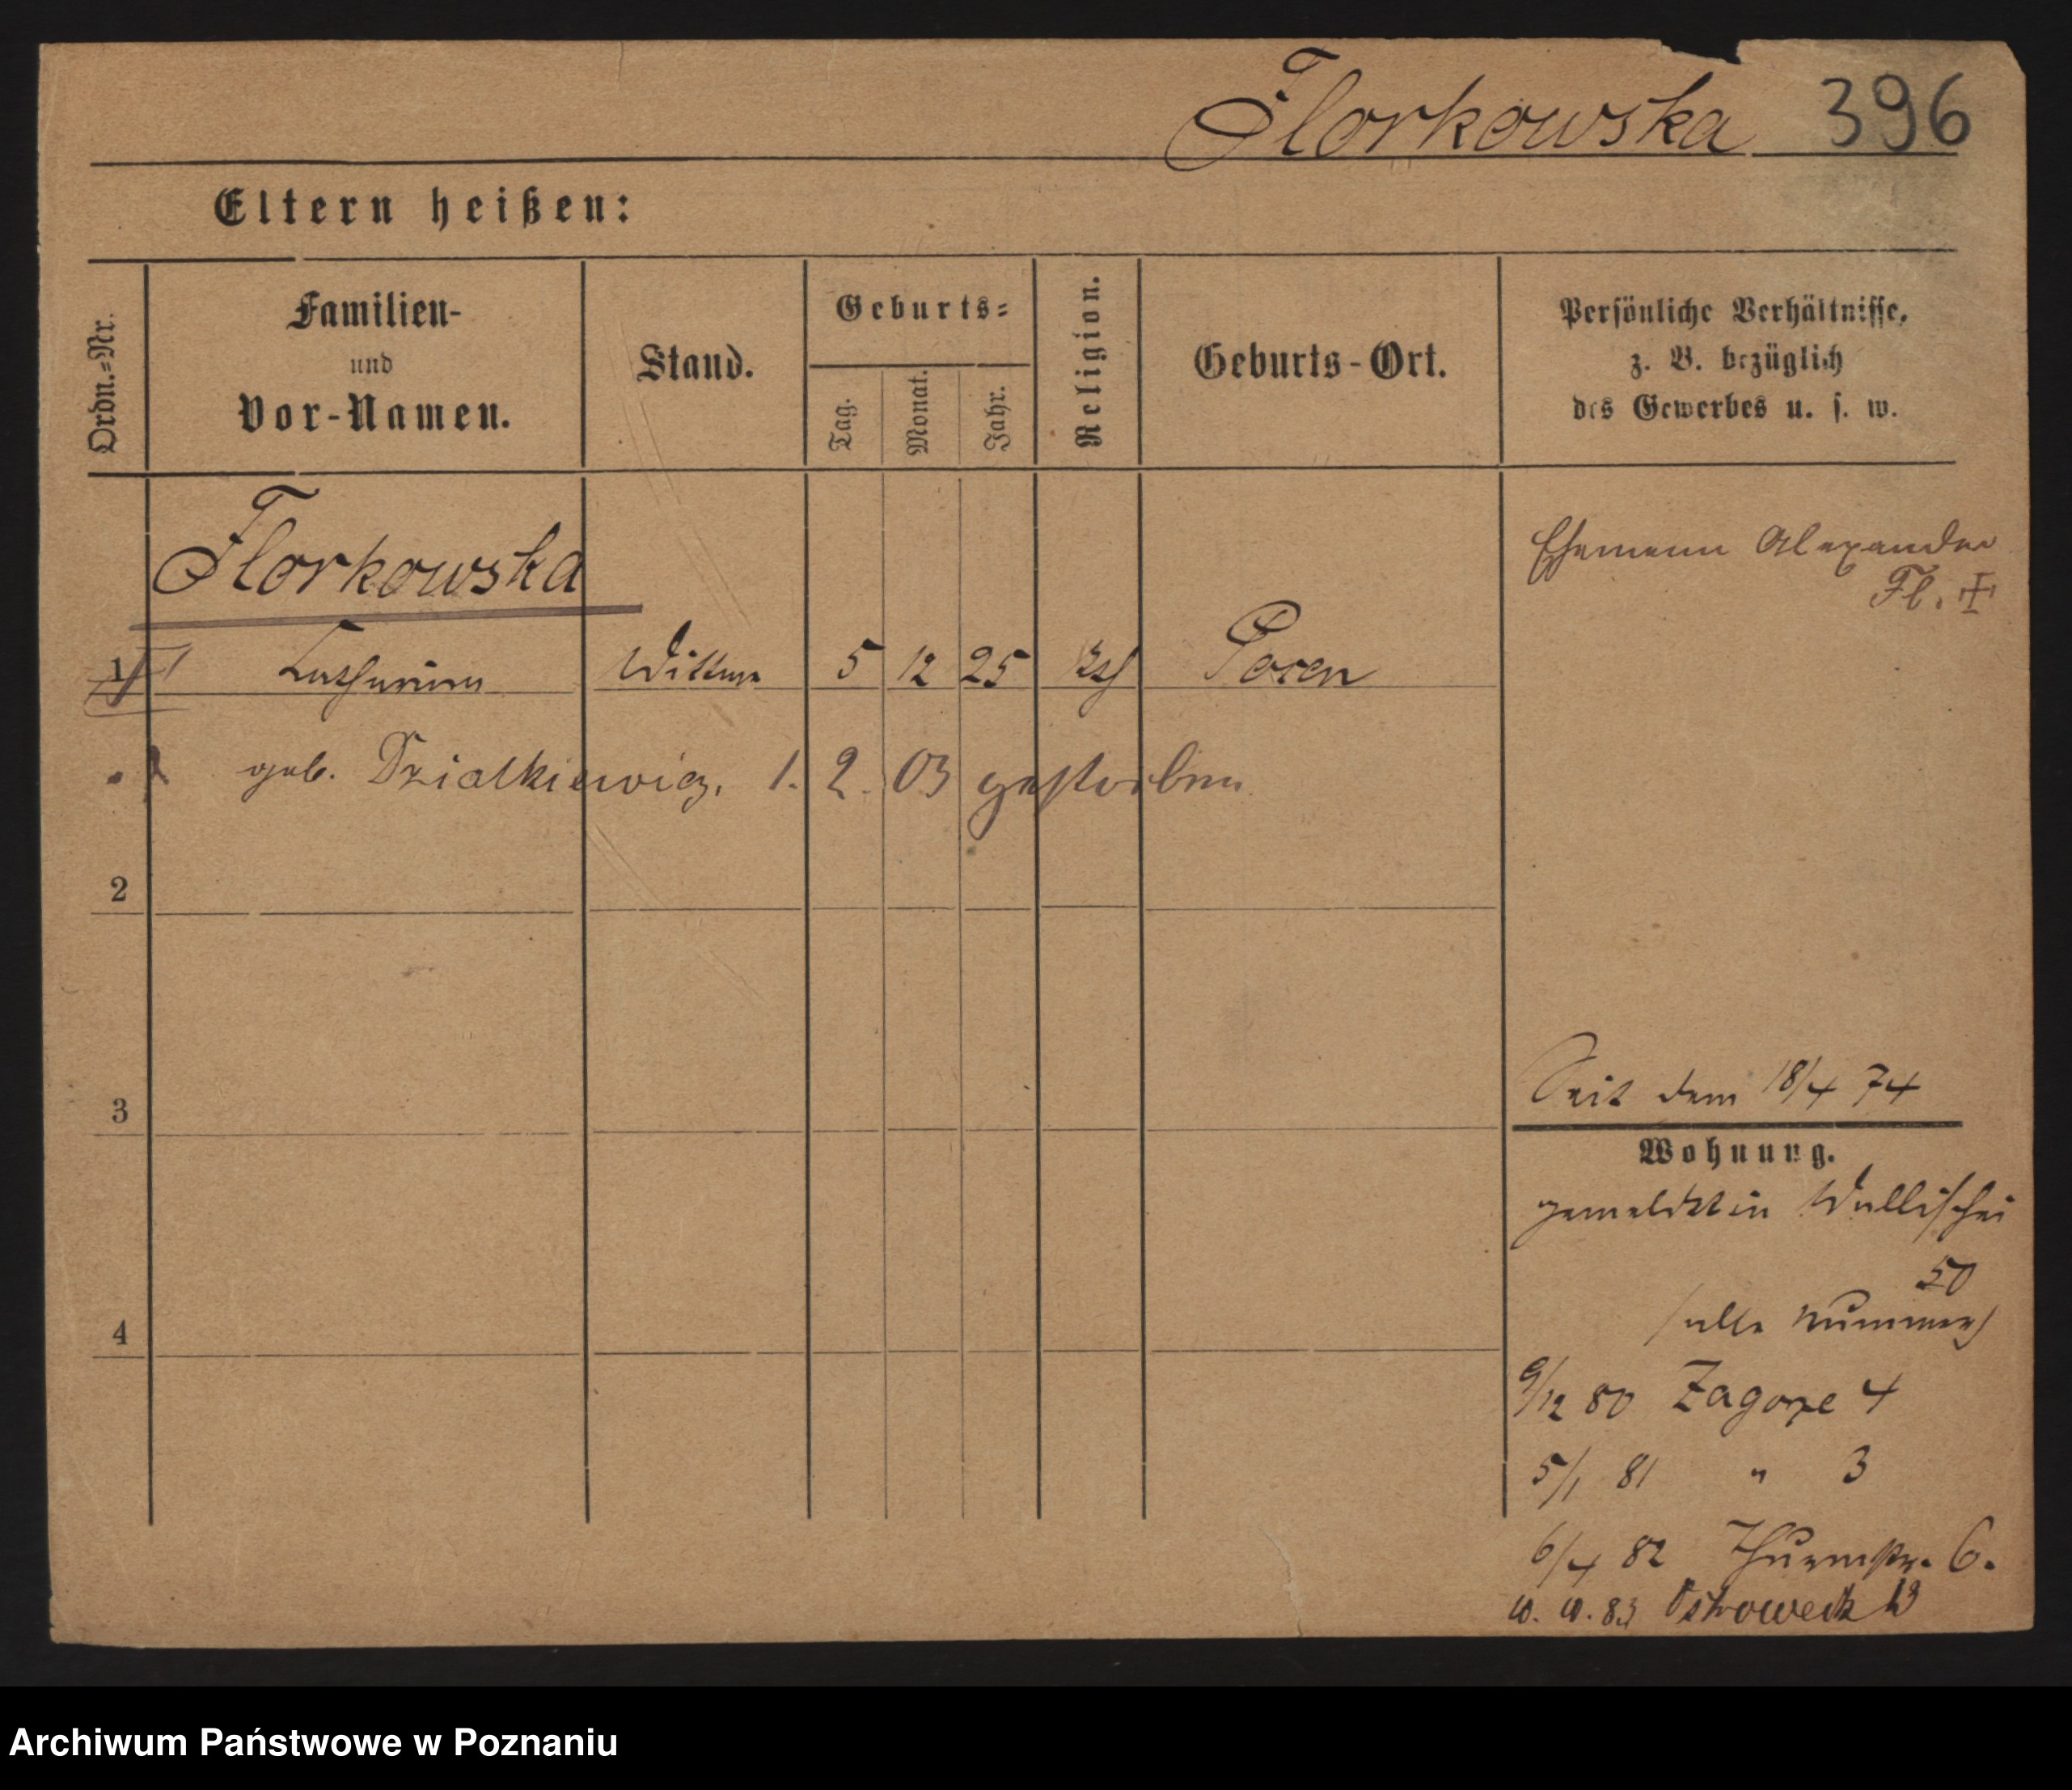 Florkowska 396
Eltern heißen:
Ordn.=Nr.
Familien-
und
Vor-Namen.
Stand.
Geburts=
Tag.
Monat.
Jahr.
Religion.
Geburts-Ort.
Persönliche Verhältnisse,
z. B. bezüglich
des Gewerbes u. s. w.
Florkowska
Ehemann Alexander
Fl. ‡
1 Catharina Wittwe 5 12 25 kth Posen
geb. Dzialkiewicz. 1. 2. 03 gestorben
2
3
4
Seit dem 18/4 74
Wohnung.
gemeldet in Wallischei
50
(alte Nummer)
9/12 80 Zagorze 4
5/1 81 " 3
6/4 82 Thurmstr. 6.
10. 10. 83 Ostroweck 13
Archiwum Państwowe w Poznaniu